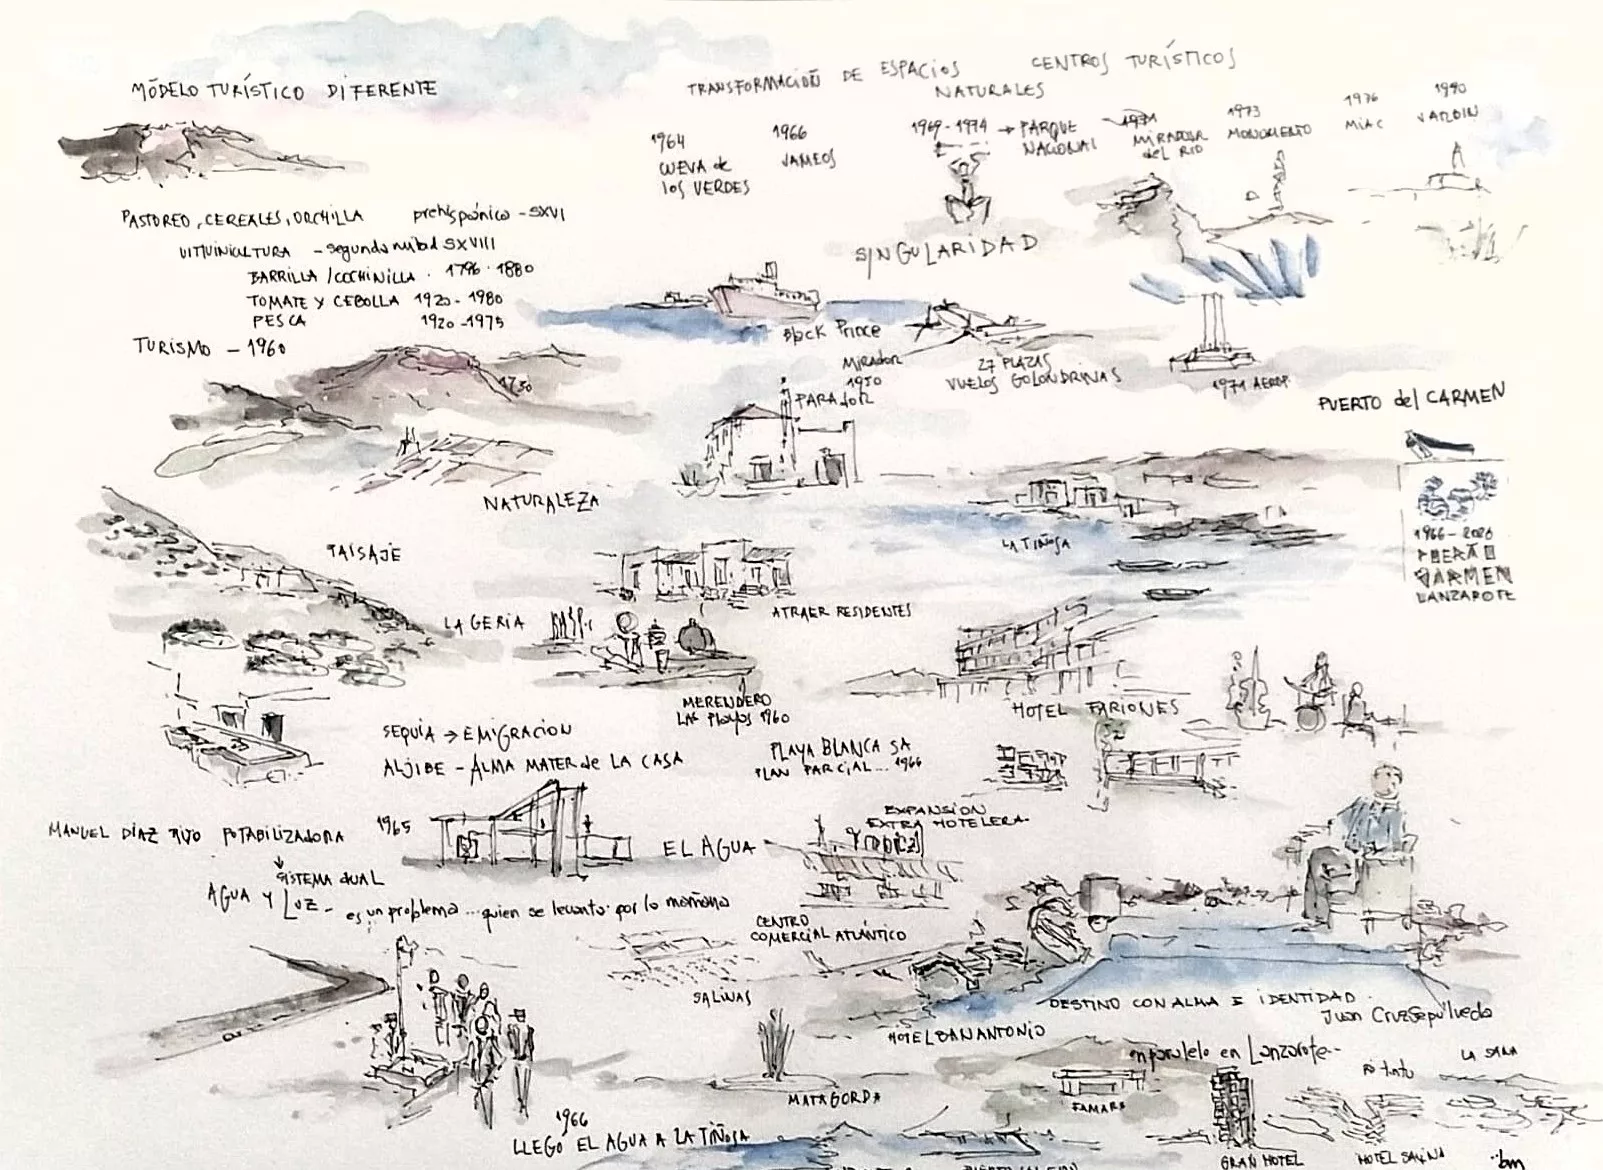 MODELO TURÍSTICO DIFERENTE
TRANSFORMACIÓN DE ESPACIOS
NATURALES
CENTROS TURÍSTICOS
1964
CUEVA de
los VERDES
1966
JAMEOS
1969-1974 → PARQUE
NACIONAL
MIRADOR
del RIO
1973
MONUMENTO
1976
MIAC
1990
JARDIN
PASTOREO, CEREALES, ORCHILLA prehispánico - SXVI
VITIVINICULTURA - segunda mitad SXVIII
BARRILLA / COCHINILLA . 1796 . 1880
TOMATE Y CEBOLLA 1920 - 1980
PESCA 1920 - 1975
TURISMO - 1960
SINGULARIDAD
Black Prince
Mirador
1950
PARADOR
27 PLAZAS
VUELOS GOLONDRINAS
1971 AEROP.
PUERTO del CARMEN
1730
NATURALEZA
LA TIÑOSA
1966 - 2026
CARMEN
LANZAROTE
PAISAJE
LA GERIA
ATRAER RESIDENTES
MERENDERO
Las Playas 1960
HOTEL FARIONES
SEQUIA → EMIGRACION
ALJIBE - ALMA MATER de LA CASA
PLAYA BLANCA SA
PLAN PARCIAL... 1966
MANUEL DIAZ RIJO POTABILIZADORA 1965
EL AGUA
EXPANSION
EXTRA HOTELERA
Tropical
SISTEMA dUAL
AGUA Y LUZ - es un problema ... quien se levanta por la mañana
CENTRO
COMERCIAL ATLÁNTICO
SALINAS
HOTEL SAN ANTONIO
DESTINO CON ALMA E IDENTIDAD
Juan Cruz Sepulveda
en paralelo en Lanzarote..
MATAGORDA
FAMARA
LA SANTA
1966
LLEGO EL AGUA A LA TIÑOSA
GRAN HOTEL
HOTEL SALINA